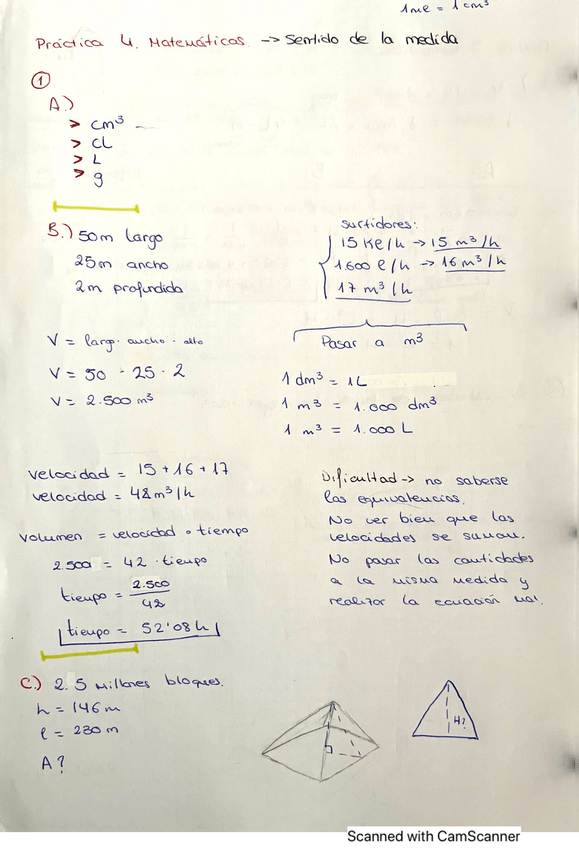 1ml = 1 cm³
Práctica 4. Matemáticas. -> Sentido de la medida
①
A.)
> cm³ —
> cL
> L
> g
B.) 50m largo
25m ancho
2m profundida
surtidores:
15 Kl/h -> 15 m³/h
1600 l/h -> 16 m³/h
17 m³/h
Pasar a m³
V = largo · ancho · alto
V = 50 · 25 · 2
V = 2.500 m³
1 dm³ = 1L
1 m³ = 1.000 dm³
1 m³ = 1.000 L
velocidad = 15 + 16 + 17
velocidad = 48 m³/h
volumen = velocidad · tiempo
2.500 = 42 · tiempo
tiempo = 2.500
42
tiempo = 52'08 h
Dificultad -> no saberse
las equivalencias.
No ver bien que las
velocidades se suman.
No pasar las cantidades
a la misma medida y
realizar la ecuación mal.
C.) 2.5 millones bloques.
h = 146 m
l = 230 m
A?
H?
Scanned with CamScanner